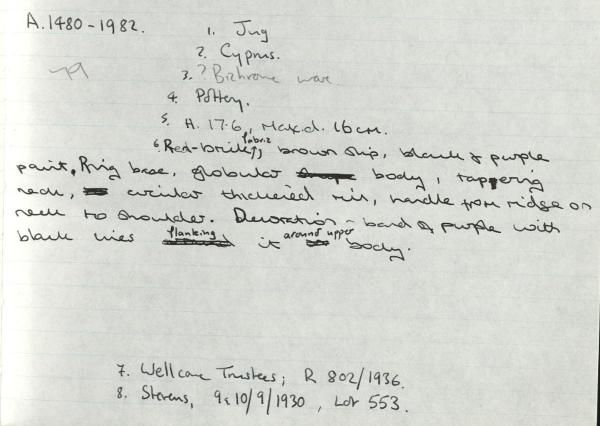 A.1480-1982.
1. Jug
2. Cyprus.
79
3. ? Bichrome ware
4. Pottery.
5. H. 17.6, Max.d. 16cm.
6. Red-brick fabric, brown slip, black & purple
paint. Ring base, globular body, tapering
neck, circular thickened rim, handle from ridge on
neck to shoulder. Decoration - band of purple with
black lines flanking it around upper body.
7. Wellcome Trustees; R 802/1936.
8. Stevens, 9&10/9/1930, Lot 553.